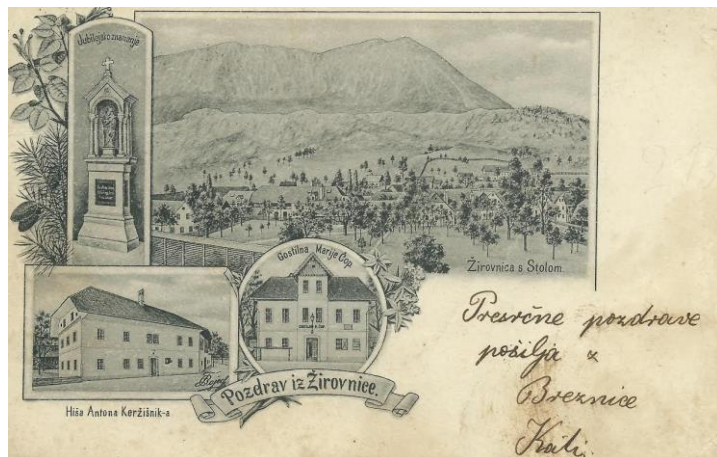 Jubilejsko znamenje
Žirovnica s Stolom.
Gostilna Marije Čop.
Hiša Antona Keržišnik-a
Pozdrav iz Žirovnice.
Presrčne pozdrave
pošilja z
Breznice
Kati.